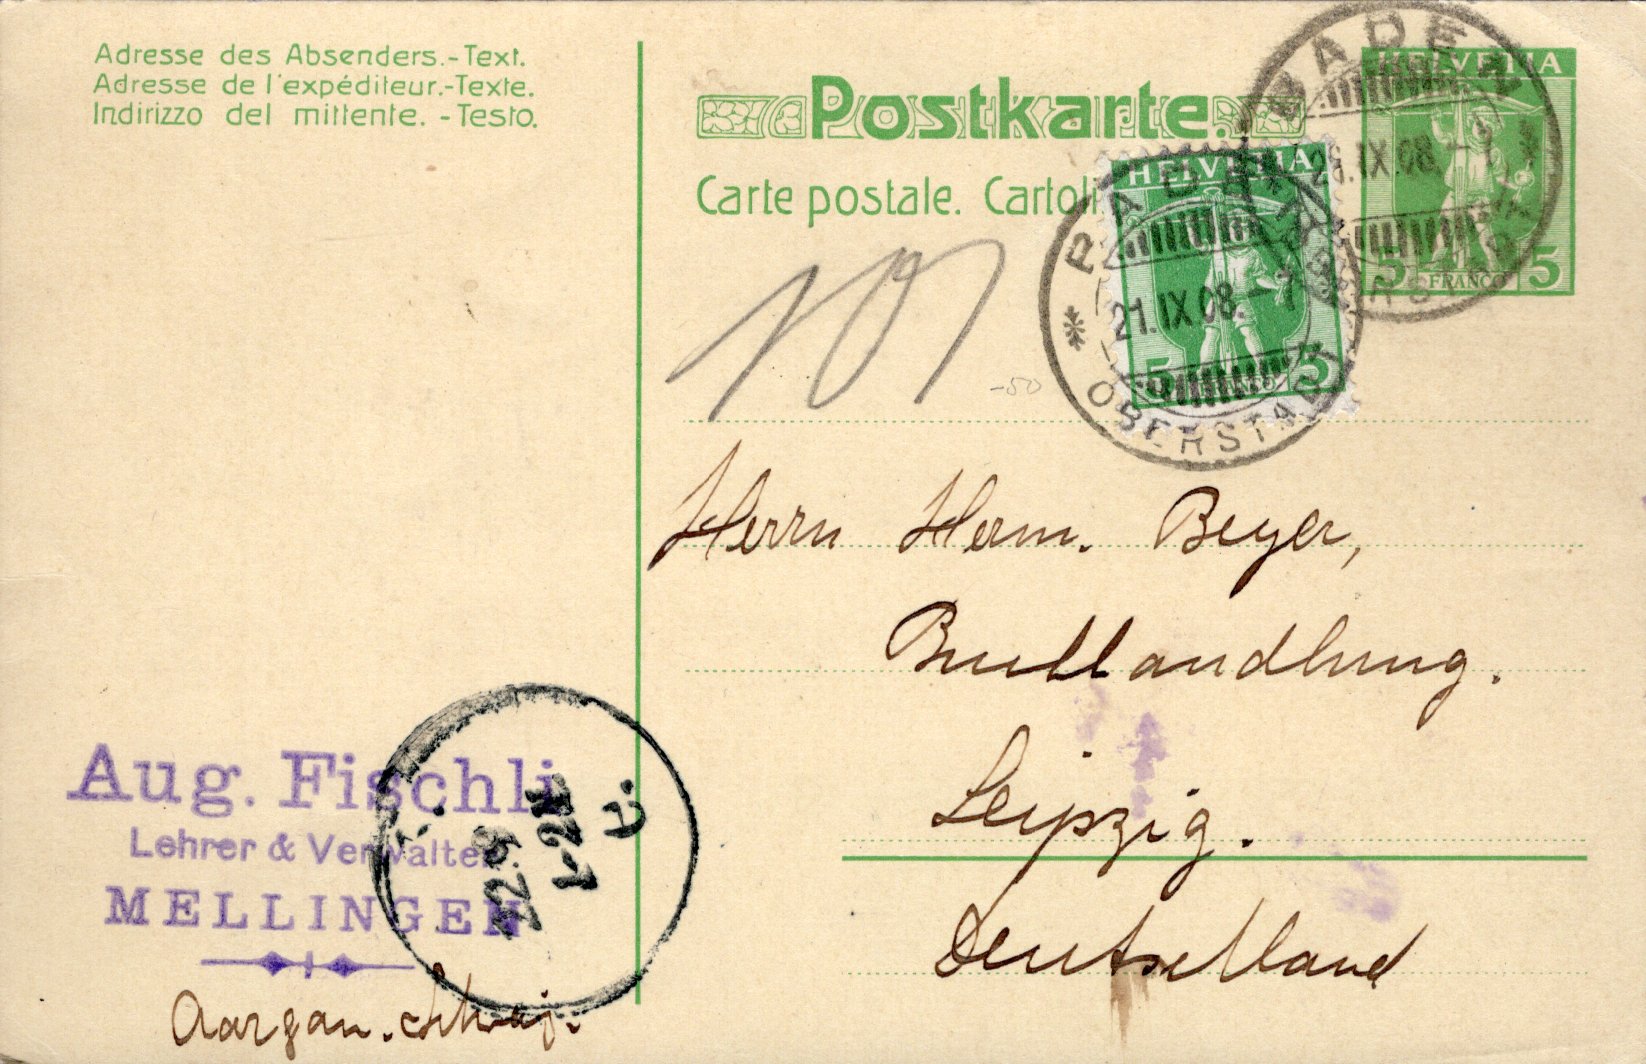 Adresse des Absenders.-Text.
Adresse de l'expéditeur.-Texte.
Indirizzo del mittente. - Testo.
Postkarte.
Carte postale. Cartoli
HELVETIA
5 FRANCO 5
HELVETIA
5 5
BADEN
21.IX.08.-7
OBERSTADT
BADEN
21.IX.08.-7
-50
Herrn Herm. Beyer,
Buchhandlung.
Leipzig.
Deutschland
Aug. Fischli
Lehrer & Verwalter
MELLINGEN
Aargau. Schweiz.
22.9